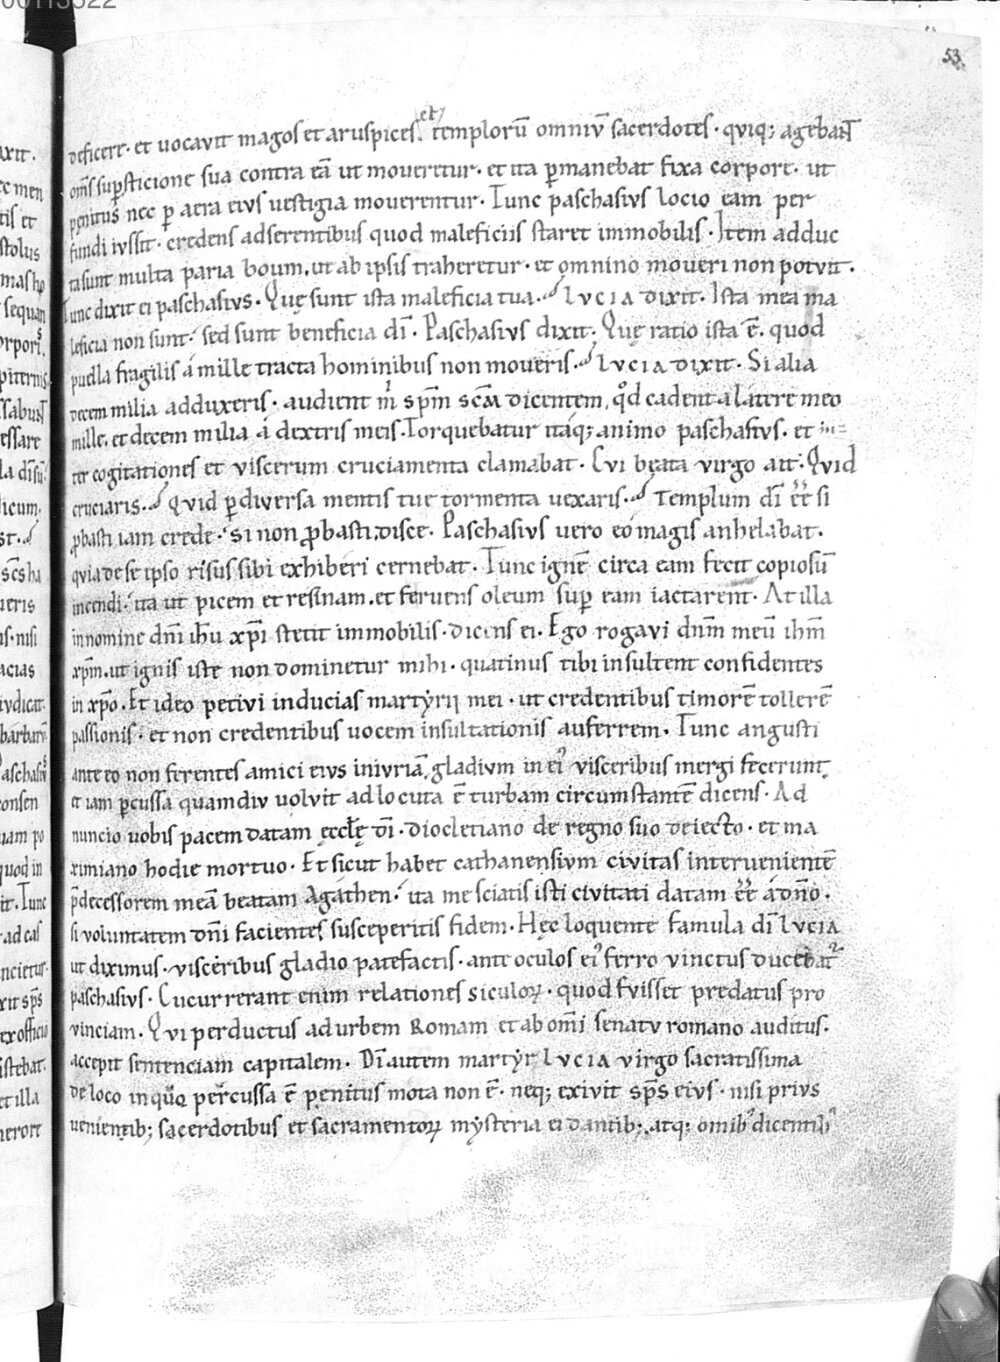 53
deficere. et vocavit magos et aruspices. et templorū omniū sacerdotes. quiq; agebant
om̄s sup̱sticione sua contra eā ut moveretur. et ita p̱manebat fixa corpore. ut
penitus nec p̱ aera eius vestigia moverentur. Tunc paschasius locio eam per
fundi iussit. credens adserentibus quod maleficiis staret immobilis. Item adduc
ta sunt multa paria boum. ut ab ipsis traheretur. et omnino moveri non potuit.
Tunc dixit ei paschasius. Quę sunt ista maleficia tua. LUCIA dixit. Ista mea ma
leficia non sunt. sed sunt beneficia dī. Paschasius dixit. Quę ratio ista ē. quod
puella fragilis á mille tracta hominibus non moveris. LUCIA dixit. Si alia
decem milia adduxeris. audient m̄ sp̄m sc̄m dicentem. qd̄ cadent a latere meo
mille. et decem milia á dextris meis. Torquebatur itáq; animo paschasius. et in
ter cogitationes et viscerum cruciamenta clamabat. Cui beata virgo ait. Quid
cruciaris. Quid p̱ diversa mentis tue tormenta vexaris. Templum dī ēē si
p̱basti iam crede. si non p̱basti. disce. Paschasius vero eo magis anhelabat.
quia de se ipso risus sibi exhiberi cernebat. Tunc ignē circa eam fecit copiosū
incendi. ita ut picem et resinam. et fervens oleum sup̱ eam iactarent. At illa
in nomine dn̄i ih̄u xp̄i stetit immobilis. dicens ei. Ego rogavi dn̄m meū ih̄m
xp̄m. ut ignis iste non dominetur mihi. quatinus tibi insultent confidentes
in xp̄o. Et ideo petivi inducias martyrii mei. ut credentibus timorē tollerē
passionis. et non credentibus vocem insultationis auferrem. Tunc angusti
ante eo non ferentes amici eius iniuriā. gladium in ei' visceribus mergi fecerunt.
et iam p̱cussa quamdiu voluit adlocuta ē turbam circumstantē dicens. Ad
nuncio vobis pacem datam ęcclę dī. diocletiano de regno suo deiecto. et ma
ximiano hodie mortuo. Et sicut habet cathanensium civitas intervenientē
p̄decessorem meā beatam Agathen. ita me sciatis isti civitati datam ēē á dn̄o.
si voluntatem dn̄i facientes susceperitis fidem. Hęc loquente famula dī LUCIA
ut diximus. visceribus gladio patefactis. ante oculos ei' ferro vinctus ducebat
paschasius. Cucurrerant enim relationes siculoꝝ. quod fuisset predatus pro
vinciam. Qui perductus ad urbem Romam et ab omī senatu romano auditus.
accepit sentenciam capitalem. Dī autem martyr LUCIA virgo sacratissima
de loco in quo percussa ē penitus mota non ē. neq; exivit sp̄s eius. nisi prius
venientib; sacerdotibus et sacramentoꝝ mysteria ei dantib; atq; omib' dicentib'